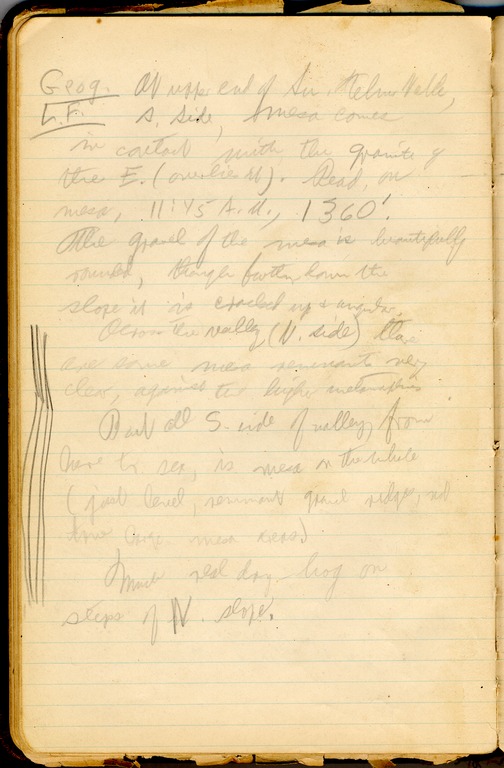 Geog. At upper end of San. Telmo Valle,
L.F. S. side, mesa comes
in contact with the granite of
the E. (overlies it). Read, on
mesa, 11:45 A.M., 1360'.
The gravel of the mesa is beautifully
rounded, though farther down the
slope it is cracked up & angular.
Across the valley (N. side) there
are some mesa remnants very
clear, against the higher metamorphics
But all S. side of valley, from
here to sea, is mesa on the whole
(just level, remnant gravel ridge, not
true large mesa areas)
Much red day on
steps of N. slope.